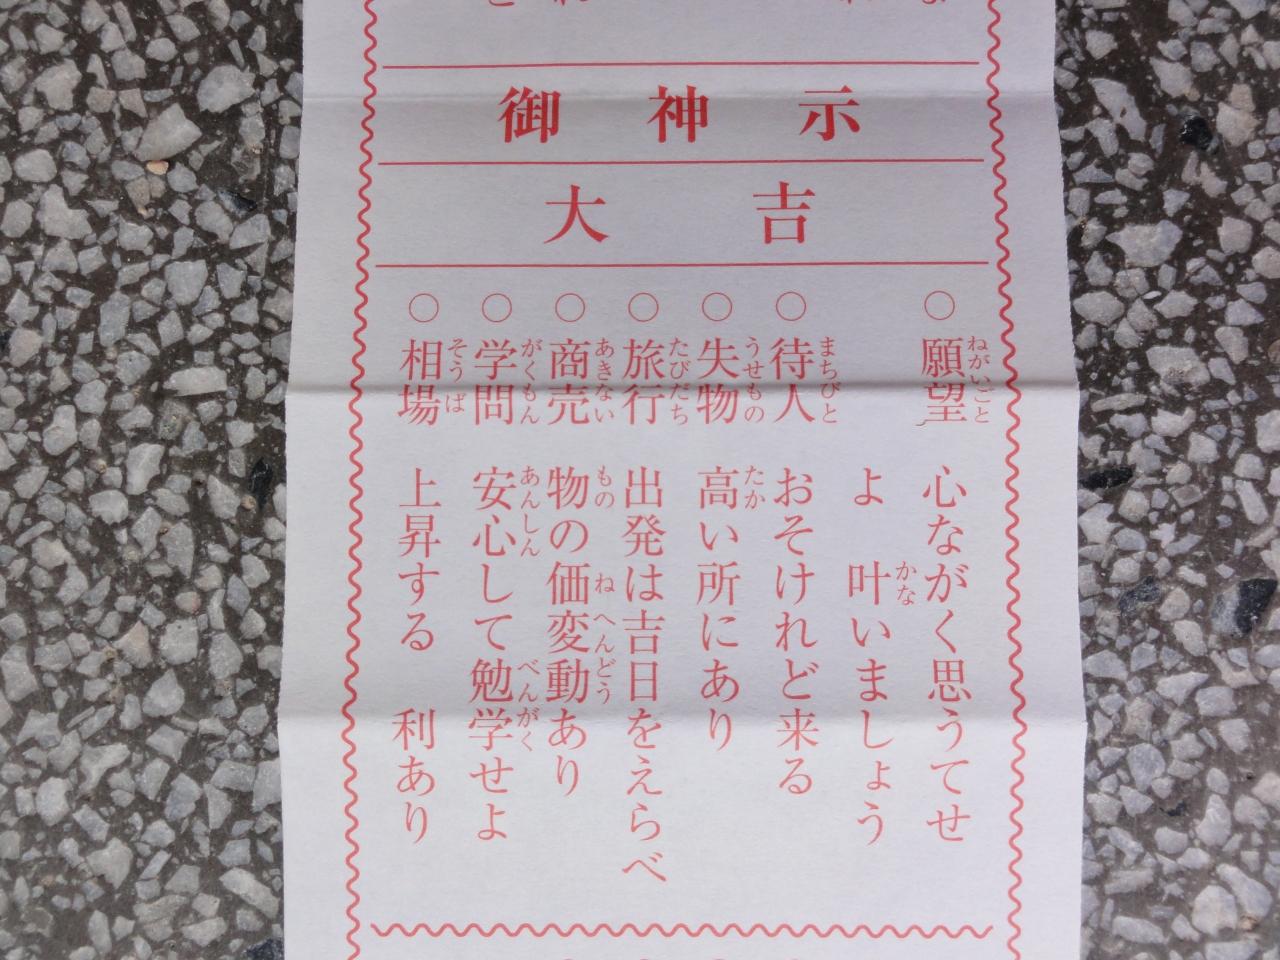 御神示
大吉
○願望 心ながく思うてせ
よ 叶いましょう
○待人 おそけれど来る
○失物 高い所にあり
○旅行 出発は吉日をえらべ
○商売 物の価変動あり
○学問 安心して勉学せよ
○相場 上昇する 利あり
ねがいごと
かな
まちびと
うせもの
たか
たびだち
あきない
もの
ね
へんどう
がくもん
あんしん
べんがく
そうば